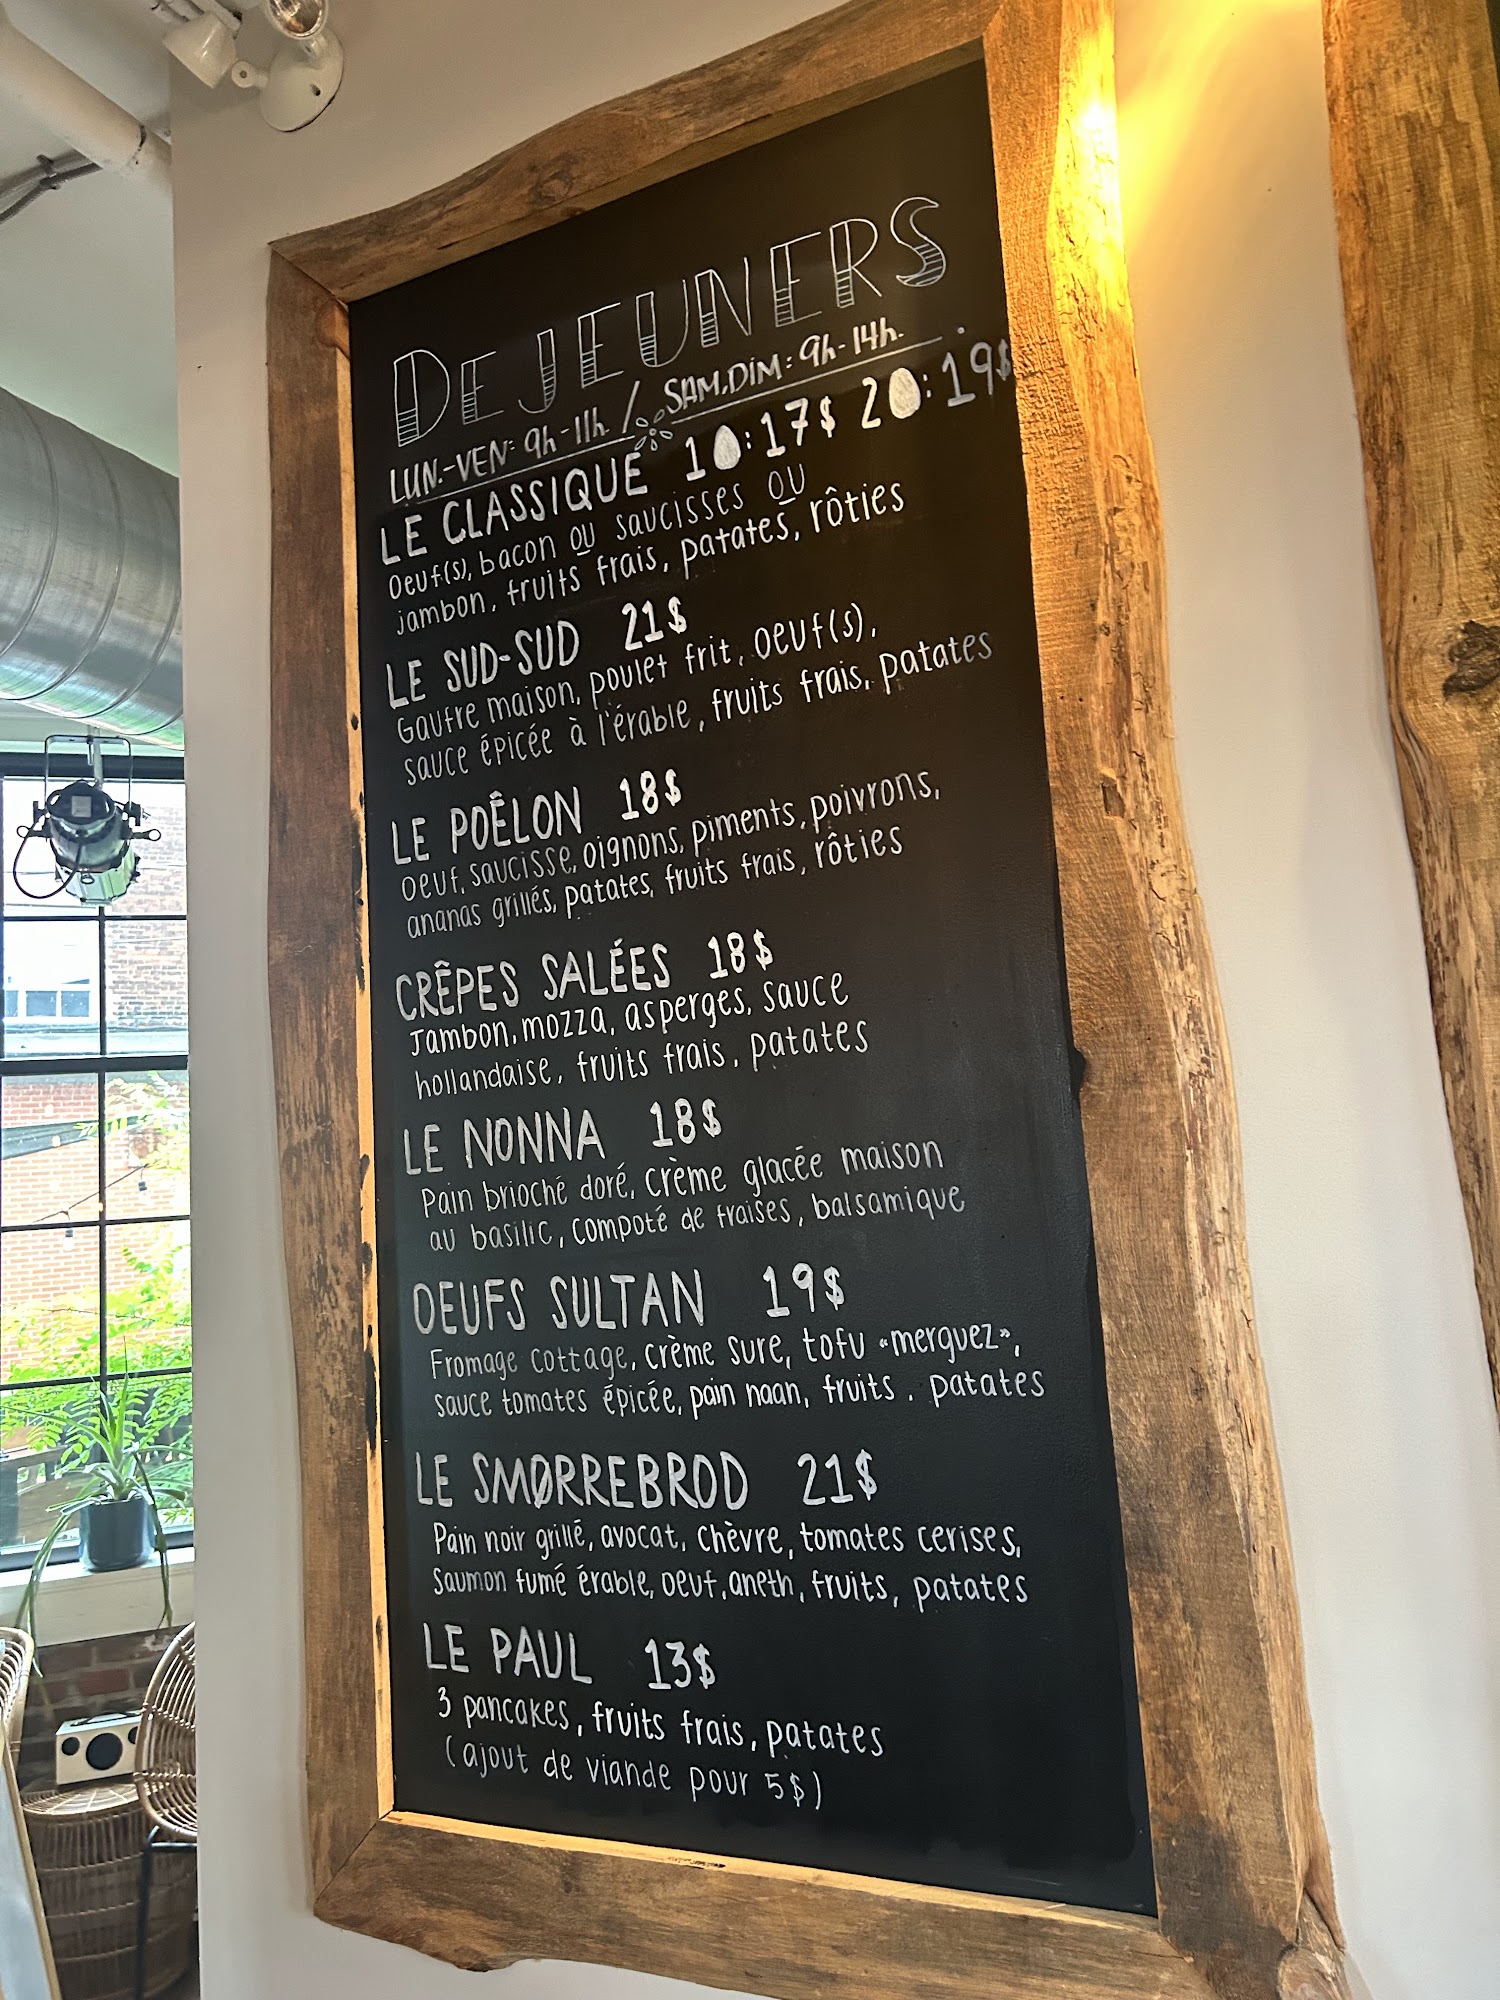 DEJEUNERS
LUN.-VEN: 9h-11h. / SAM, DIM: 9h-14h.
LE CLASSIQUE 1 : 17$ 2 : 19$
Oeuf(s), bacon OU saucisses OU
jambon, fruits frais, patates, rôties
LE SUD-SUD 21$
Gaufre maison, poulet frit, oeuf(s),
sauce épicée à l'érable, fruits frais, patates
LE POÊLON 18$
Oeuf, saucisse, oignons, piments, poivrons,
ananas grillés, patates, fruits frais, rôties
CRÊPES SALÉES 18$
Jambon, mozza, asperges, sauce
hollandaise, fruits frais, patates
LE NONNA 18$
Pain brioché doré, crème glacée maison
au basilic, compoté de fraises, balsamique
OEUFS SULTAN 19$
Fromage cottage, crème sure, tofu «merguez»,
sauce tomates épicée, pain naan, fruits, patates
LE SMØRREBROD 21$
Pain noir grillé, avocat, chèvre, tomates cerises,
Saumon fumé érable, oeuf, aneth, fruits, patates
LE PAUL 13$
3 pancakes, fruits frais, patates
(ajout de viande pour 5$)